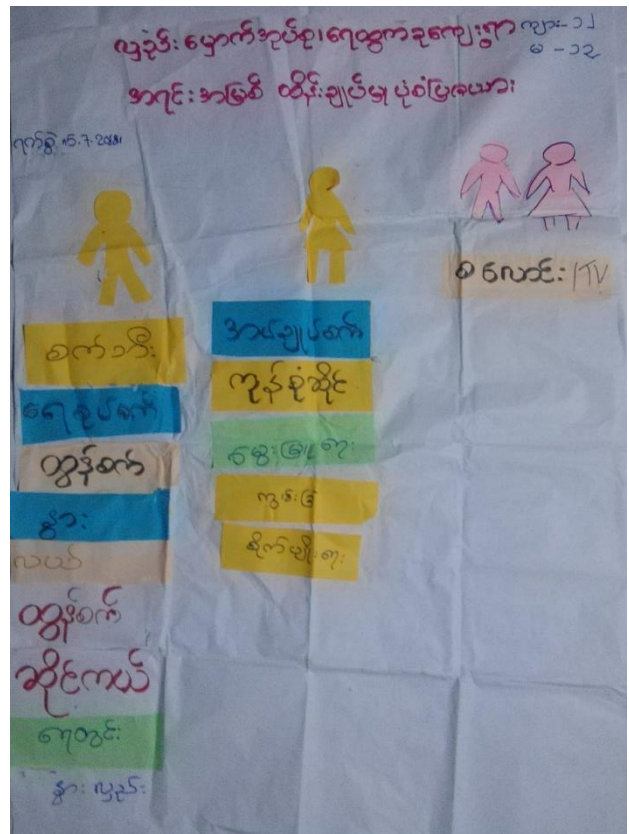 လှည်းမှောက်အုပ်စု၊ ရေထွက်ခုကျေးရွာ ကျား-၁၂
မ - ၁၃
အရင်းအမြစ် ထိန်းချုပ်မှု ပုံစံပြဇယား
ရက်စွဲ
စက်ဘီး
ရေစုပ်စက်
ထွန်စက်
နွား
လယ်
ထွန်စက်
ဆိုင်ကယ်
ရေတွင်း
နွားလှည်း
အပ်ချုပ်စက်
ကုန်စုံဆိုင်
မွေးမြူရေး
ကွမ်းခြံ
စိုက်ပျိုးရေး
စလောင်း/TV